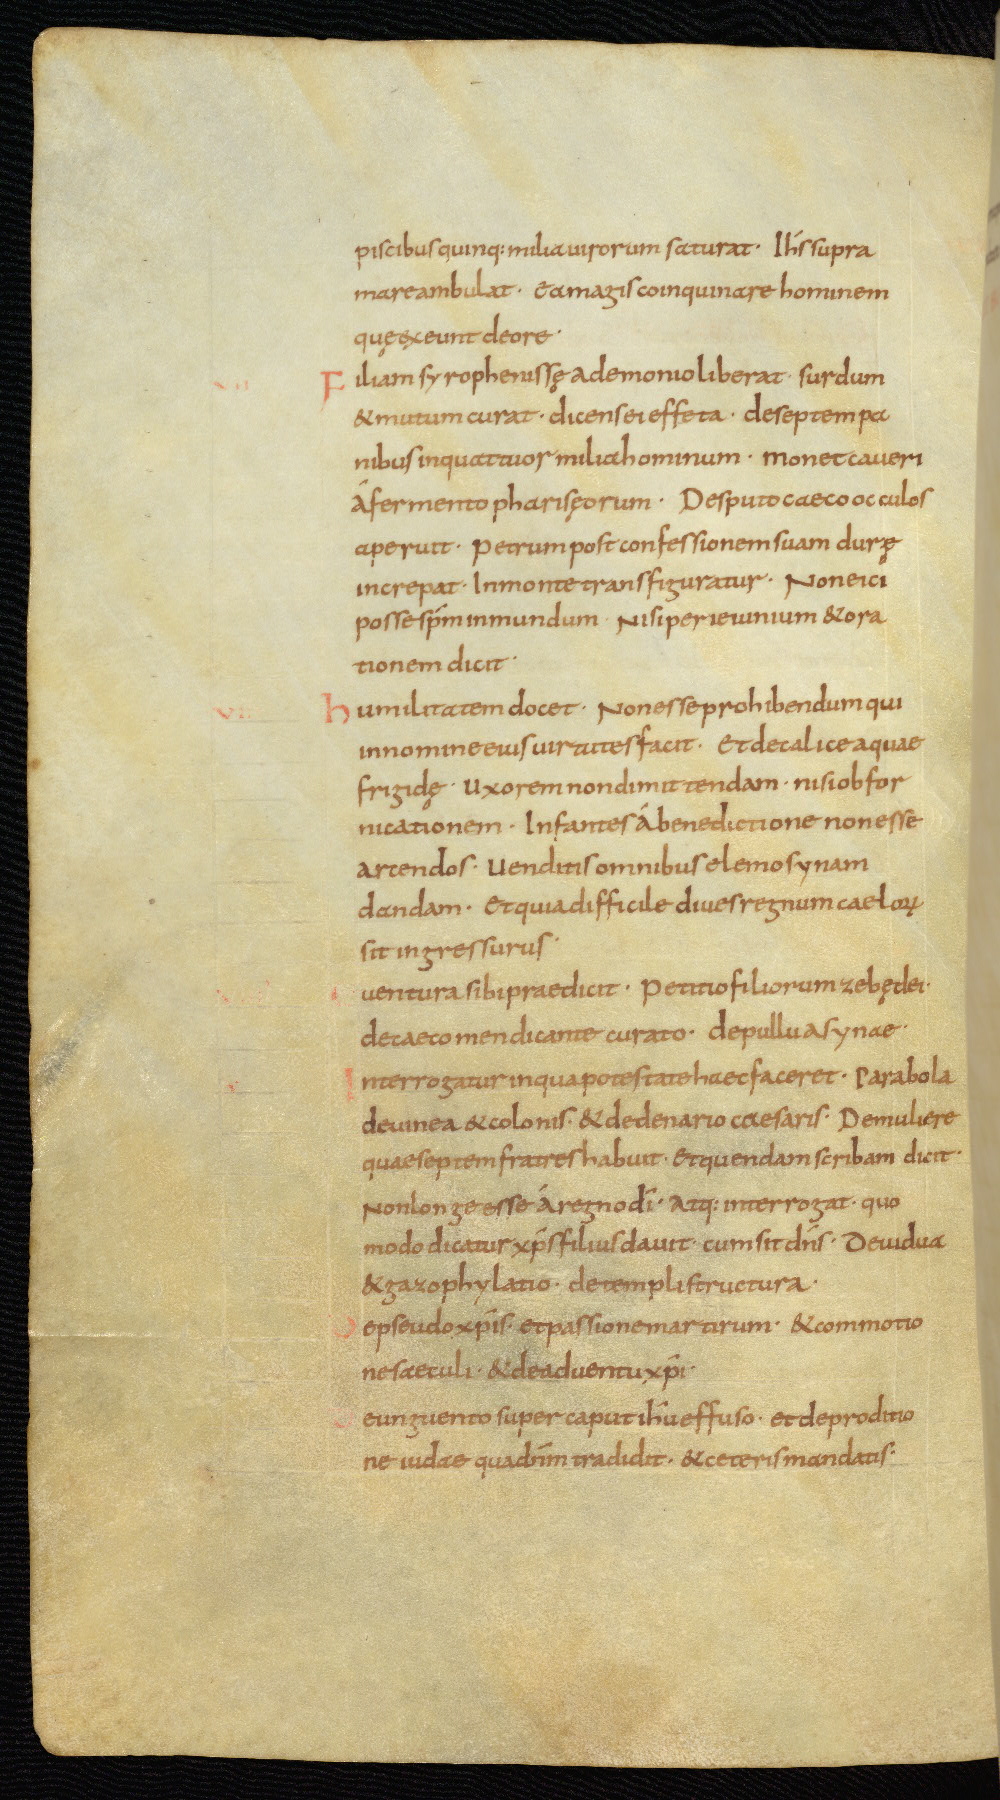 piscibus quinq: milia uirorum saturat· Ih̄s supra
mare ambulat· Ea magis coinquinare hominem
quę exeunt de ore·
VII Filiam syrophenissę a demonio liberat· surdum
& mutum curat· dicens ei effeta· de septem pa
nibus in quattuor milia hominum· monet caueri
á fermento pharisęorum· De sputo caeco occulos
aperuit· Petrum post confessionem suam durę
increpat· In monte transfiguratur· Non eici
posse sp̄m inmundum Nisi per ieiunium & ora
tionem dicit·
humilitatem docet· Non esse prohibendum qui
in nomine eius uirtutes facit· Et de calice aquae
frigidę· Uxorem non dimittendam· nisi ob for
nicationem· Infantes á benedictione non esse
arcendos· Uenditis omnibus elemosynam
dandam· Et quia difficile diues regnum caeloꝝ
sit ingressurus·
uentura sibi praedicit· Petitio filiorum zebędei·
de caeco mendicante curato· de pullu asynae·
Interrogatur in qua potestate haec faceret· Parabola
de uinea & colonis· & de denario caesaris· De muliere
quae septem fratres habuit· Et quendam scribam dicit·
Non longe esse á regno dī· Atq: interrogat· quo
modo dicatur xp̄s filius dauit· cum sit dn̄s· De uidua
& gazophylatio· de templi structura·
De pseudo xp̄is· et passione martirum· & commotio
ne saeculi· & de aduentu xp̄i·
e unguento super caput ih̄u effuso· et de proditio
ne iudae qua dn̄m tradidit· & ceteris mandatis·